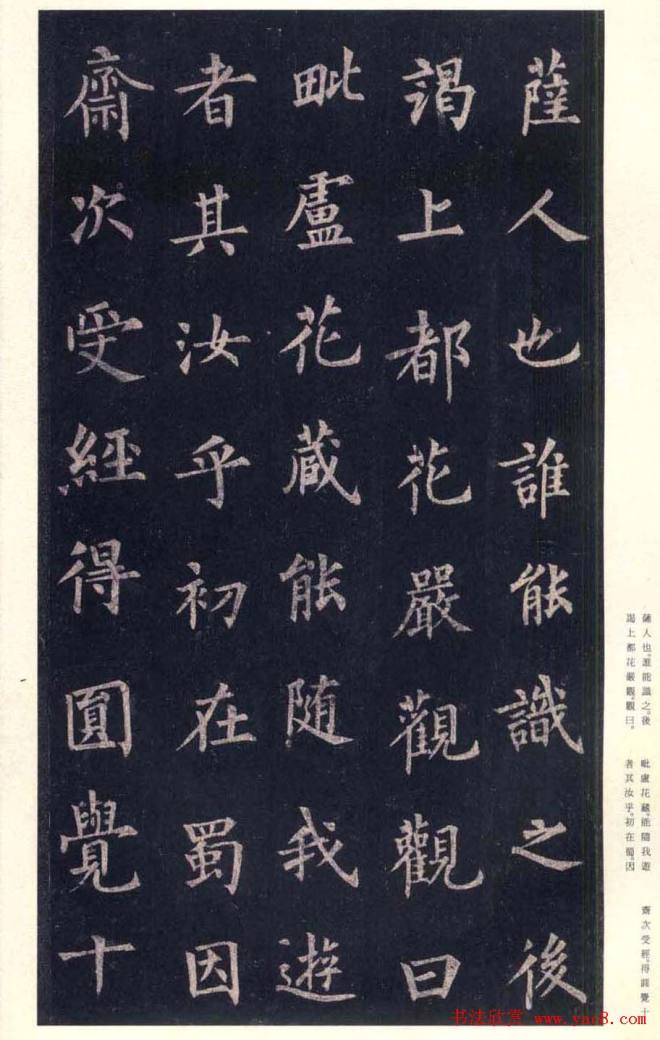 薩人也誰能識之後
謁上都花嚴觀觀曰
毗盧花藏能随我遊
者其汝乎初在蜀因
齋次受經得圓覺十
薩人也。誰能識之。後
謁上都花嚴觀。觀曰。
毗盧花藏。能隨我遊
者其汝乎。初在蜀。因
齋次受經。得圓覺十
书法欣赏 www.yac8.com